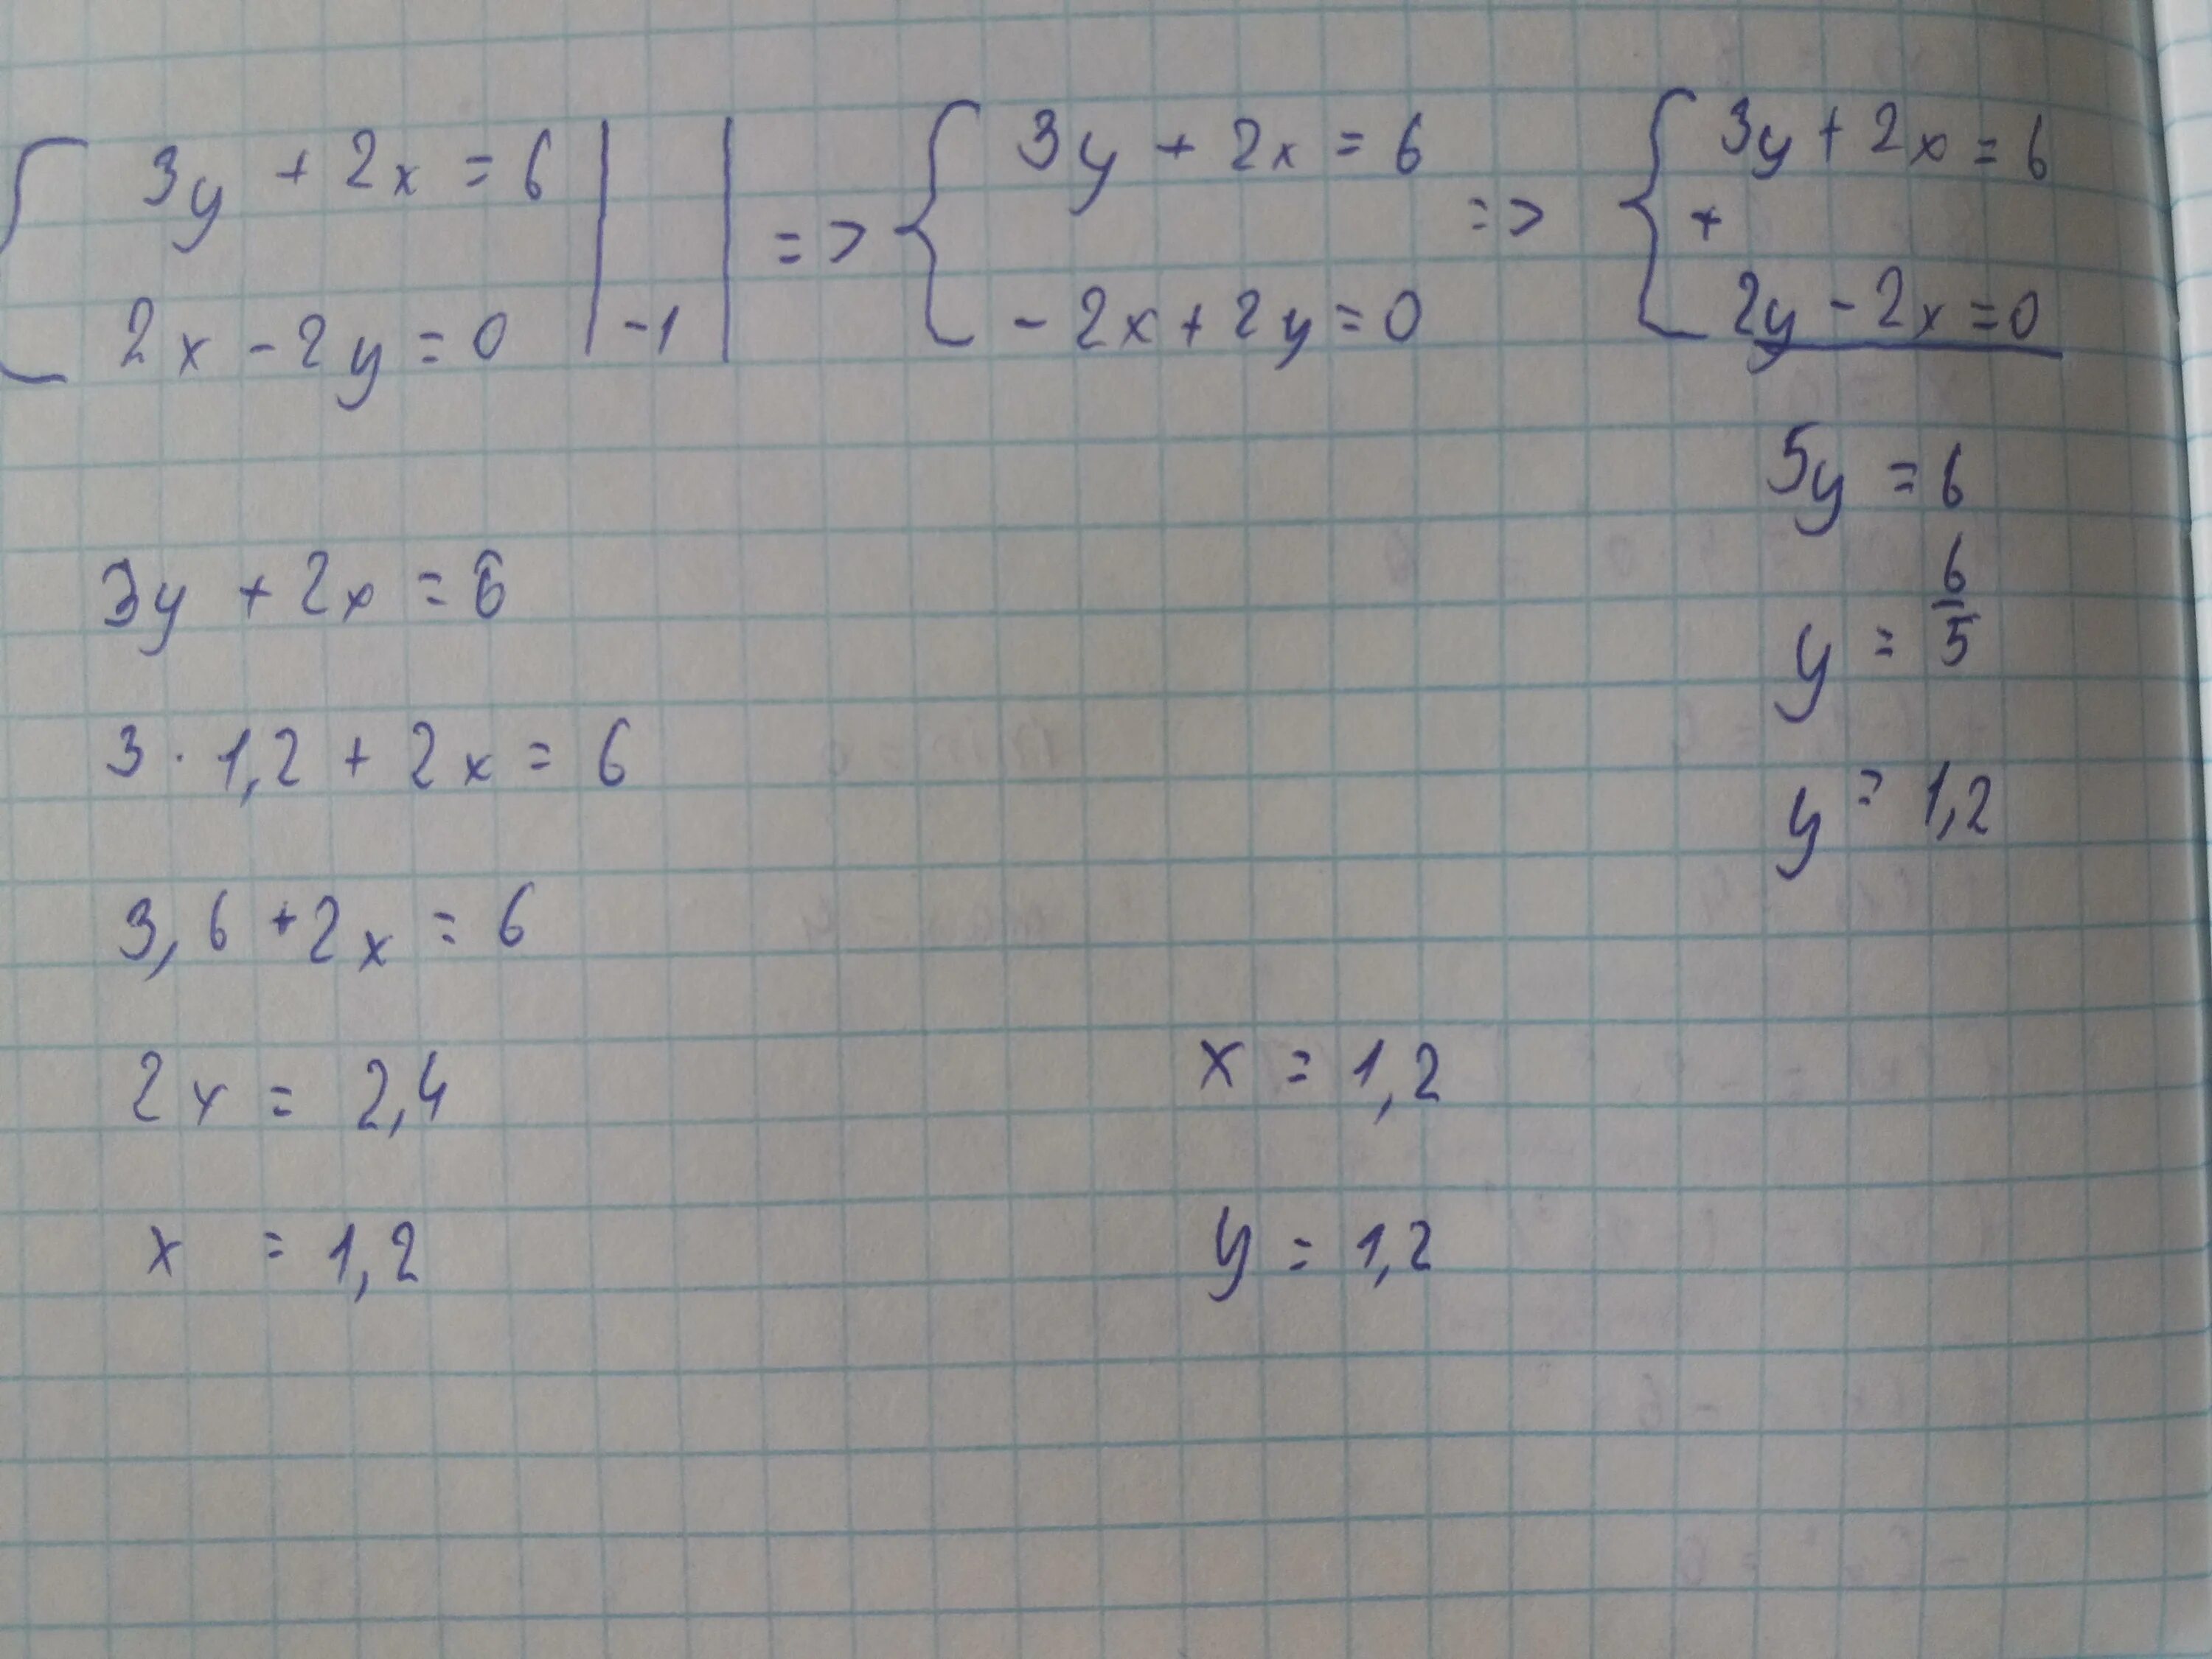 3y + 2x = 6 | | => { 3y + 2x = 6 => { 3y + 2x = 6
+
2x - 2y = 0 | -1 | - 2x + 2y = 0 2y - 2x = 0
5y = 6
y = 6/5
y = 1,2
3y + 2x = 6
3 · 1,2 + 2x = 6
3,6 + 2x = 6
2x = 2,4
x = 1,2
x = 1,2
y = 1,2